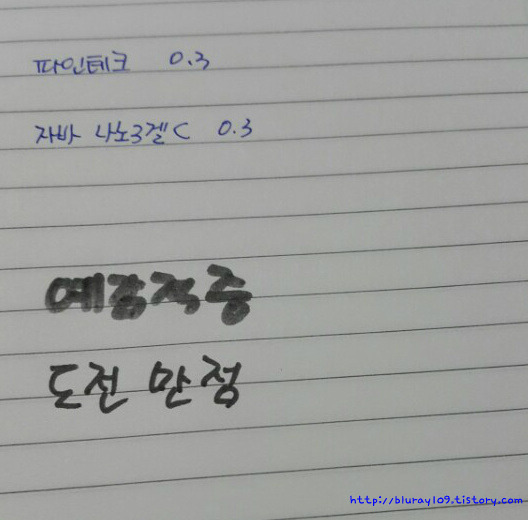 파인테크 0.3
자바 나노3겔C 0.3
예감적중
도전 만점
http://bluray109.tistory.com